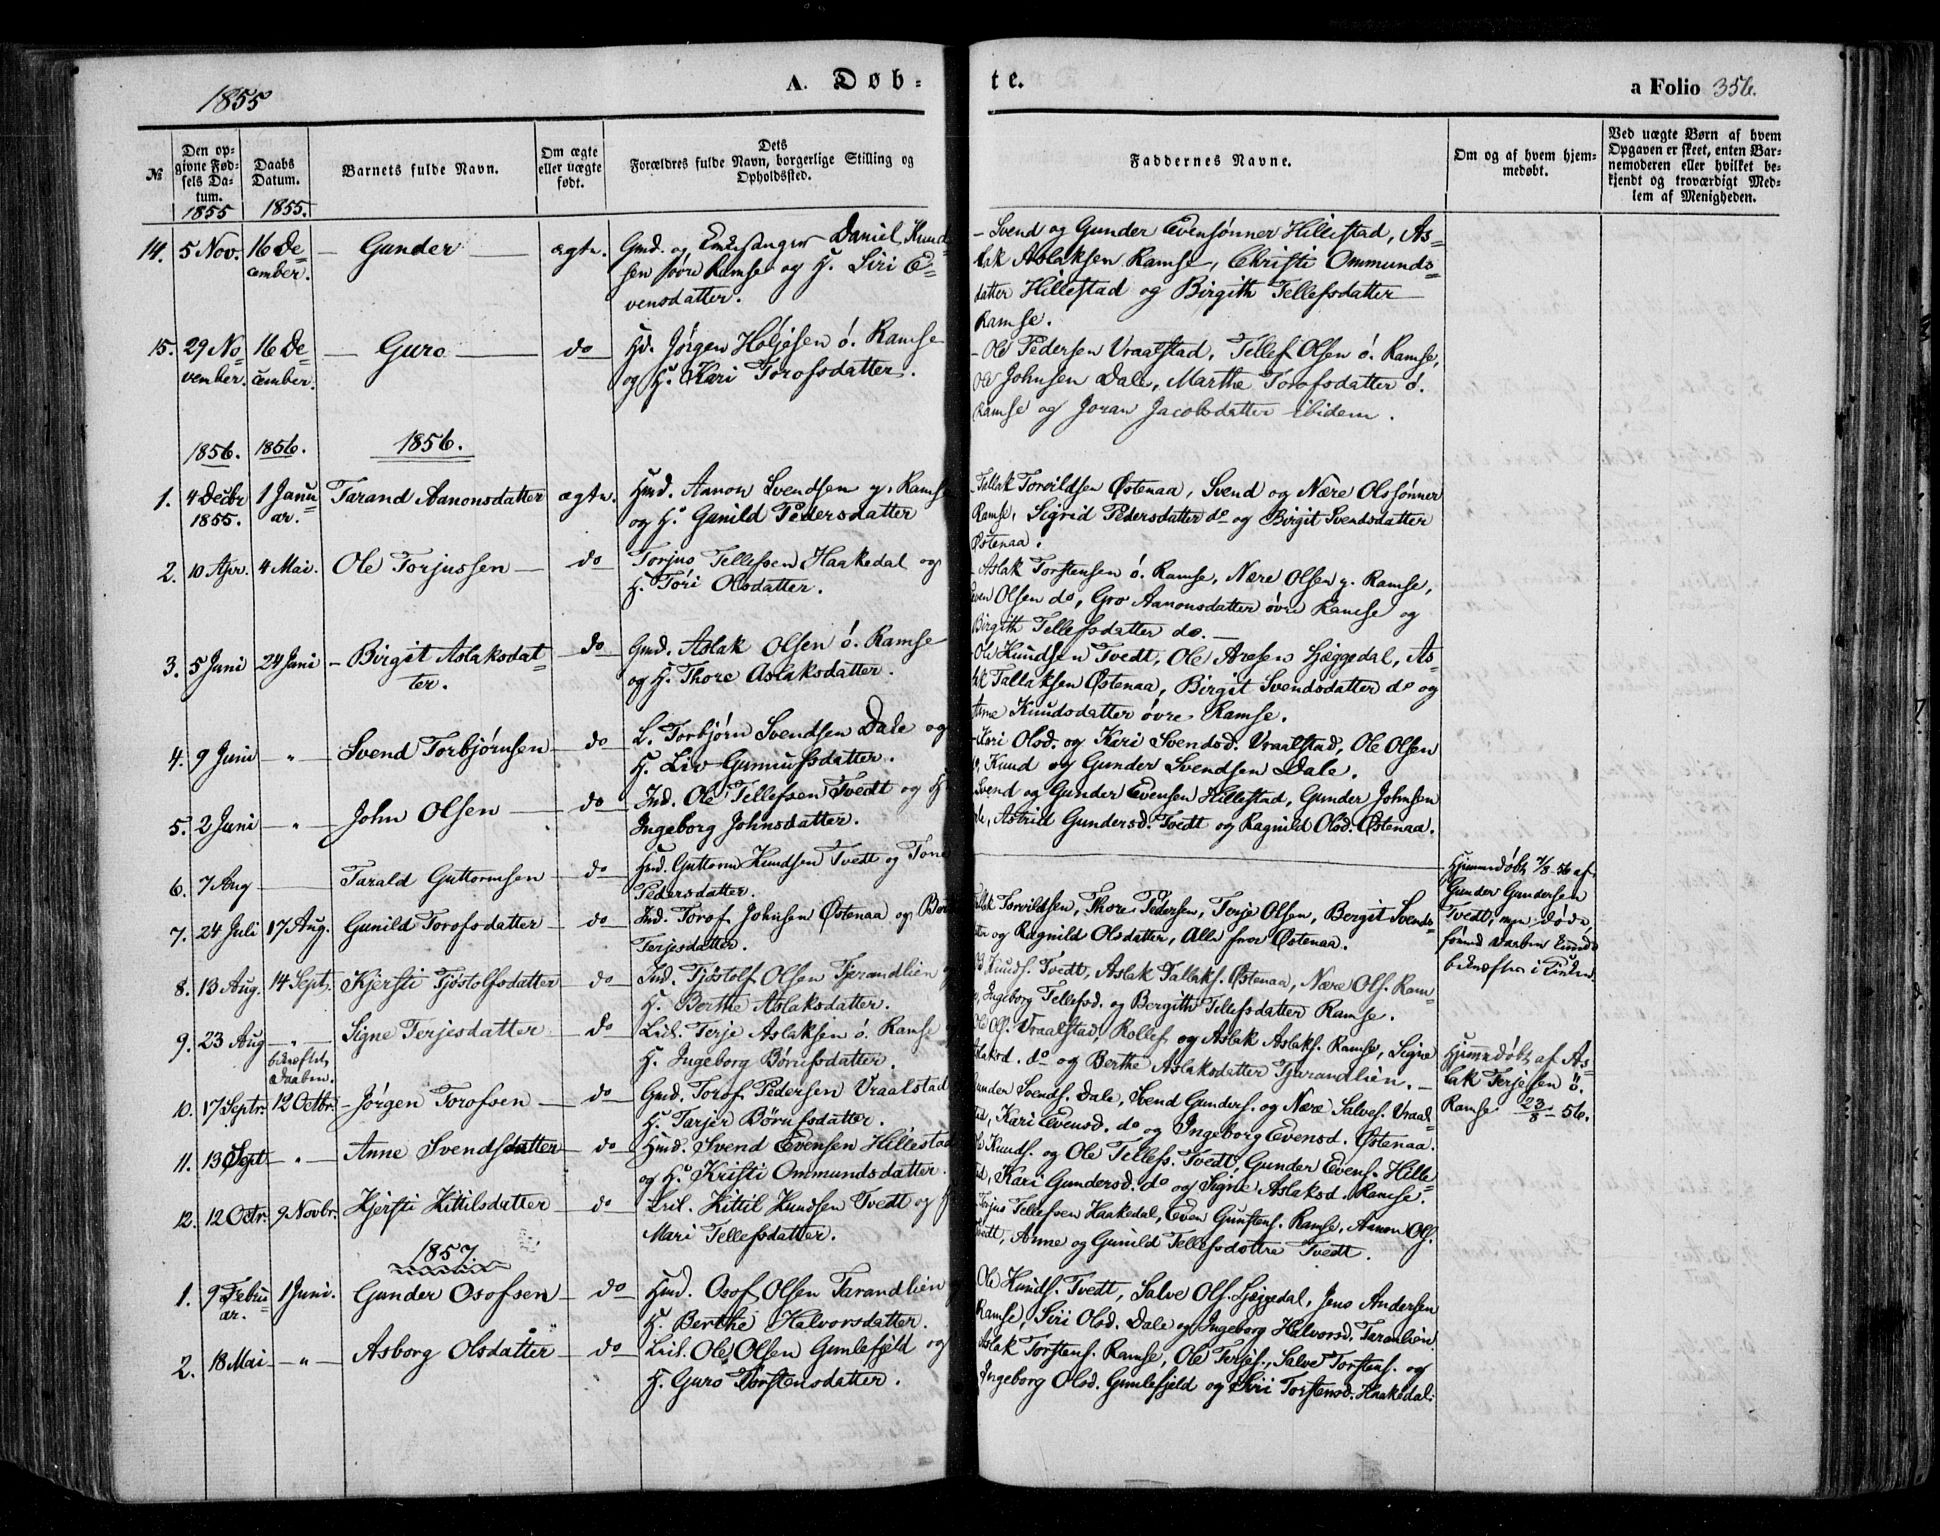 1855
A. Døb-
te.
a Folio 356.
№
Den op-
givne Fød-
sels Da-
tum.
1855
Daabs
Datum.
1855.
Barnets fulde Navn.
Om ægte
eller uægte
født.
Dets
Forældres fulde Navn, borgerlige Stilling og
Opholdssted.
Faddernes Navne.
Om og af hvem hjem-
medøbt.
Ved uægte Børn af hvem
Opgaven er skeet, enten Bar-
nemoderen eller hvilket be-
kjendt og troværdigt Med-
lem af Menigheden.
14. 5 Nov. 16 De-
cember.
Gunder
ægte.
Gmd. og Daniel Knud-
sen øvre Ramse og H. Siri E-
vensdatter.
Svend og Gunder Evensønner Hillestad, As-
lak Aslaksen Ramse, Christi Ommunds-
datter Hillestad og Birgith Tellefsdatter
Ramse.
15. 29 No-
vember. 16 De-
cember.
Guro
do
Hd. Jørgen Holjesen ö. Ramse
og H. Kari Torofsdatter.
Ole Pedersen Vraalstad, Tellef Olsen ö. Ramse,
Ole Johnsen Dale, Marthe Torofsdatter ö.
Ramse og Joran Jacobsdatter ibidem.
1856. 1856. 1856.
1. 4 Decbr
1855. 1 Janu-
ar.
Tarand Aanonsdatter
ægte.
Hmd. Aanon Svendsen y. Ramse
og H. Gunild Pedersdatter
Tallak Torvildsen Østenaa, Svend og Nære Olssønner
Ramse, Sigrid Pedersdatter do og Birgit Svendsdatter
Østenaa.
2. 10 Apr. 4 Mai.
Ole Torjussen
do
Torjus Tellefsen Haakedal og
H. Tori Olsdatter.
Aslak Torstensen ö. Ramse, Nære Olsen y. Ramse,
Even Olsen do, Gro Aanonsdatter øvre Ramse og
Birgith Tellefsdatter do.
3. 5 Juni 24 Juni
Birgit Aslaksdat-
ter.
do
Gmd. Aslak Olsen ö. Ramse
og H. Thore Aslaksdatter.
Ole Knudsen Tvedt, Ole Aresen Ljøggedal, As-
lak Tallaksen Østenaa, Birgit Svendsdatter do og
Anne Knudsdatter øvre Ramse.
4. 9 Juni „
Svend Torbjørnsen
do
L. Torbjørn Svendsen Dale og
H. Liv Gunnufsdatter.
Kari Olsd. og Kari Svendsd. Vraalstad, Ole Olsen
Knud og Gunder Svendsen Dale.
5. 2 Juni „
John Olsen
do
Ind. Ole Tellefsen Tvedt og H
Ingeborg Johnsdatter.
Svend og Gunder Evensen Hillestad, Gunder Johnsen
Astrid Gundersd. Tvedt og Ragnild Olsd. Østenaa.
6. 7 Aug
Tarald Guttormsen
do
Hmd. Guttorm Knudsen Tvedt og Tone
Pedersdatter.
Hjemmedøbt 7/8 56 af
Gunder Gundersen
Tvedt, men døde,
førend Daaben kunde
bekræftes i Kirken.
7. 24 Juli 17 Aug.
Gunild Torofsdatter
do
Ind. Torof Johnsen Østenaa og
Terjesdatter.
Tallak Torvildsen, Thore Pedersen, Terje Olsen, Bergit Svends-
datter og Ragnild Olsdatter, Alle fra Østenaa.
8. 13 Aug. 14 Sept.
Kjersti Tjøstolfsdatter
do
Ind. Tjöstolf Olsen Tjerandlien
H. Berthe Aslaksdatter.
Knuds. Tvedt, Aslak Tallaks. Østenaa, Nære Ols. Ram-
se, Ingeborg Tellefsd. og Bergith Tellefsdatter Ramse.
9. 23 Aug „
bekræftet
Daaben.
Signe Terjesdatter
do
Leil. Terje Aslaksen ö. Ramse
H. Ingeborg Børufsdatter.
Ole Ols. Vraalstad, Rollef og Aslak Aslaks. Ramse, Signe
Aslaksd. do og Berthe Aslaksdatter Tjarandlien.
Hjemmedøbt af As-
lak Terjesen ö.
Ramse 23/8 56.
10. 17 Septr. 12 Octbr.
Jørgen Torofsen
do
Gmd. Torof Pedersen Vraalstad
H. Tarjer Börufsdatter.
Gunder Svends. Dale, Svend Gunders. og Nære Salves. Vraal-
stad, Kari Evensd. do og Ingeborg Evensd. Østenaa.
11. 13 Sept „
Anne Svendsdatter
do
Hmd. Svend Evensen Hillestad
og H. Kristi Ommundsdatter.
Ole Knuds. og Ole Tellefs. Tvedt, Gunder Evens. Hille-
stad, Kari Gundersd. do og Signe Aslaksd. Ramse.
12. 12 Octr. 9 Novbr.
Kjersti Kittilsdatter
do
Leil. Kittil Knudsen Tvedt og H
Mari Tellefsdatter.
Torjus Tellefsen Haakedal, Even Gunstens. Ramse, Aanon Ols.
Tvedt, Anne og Gunild Tellefsdøttre Tvedt.
1857.
1. 9 Febru-
ar. 1 Juni.
Gunder Osofsen
do
Hmd. Osof Olsen Tarandlien
H. Berthe Halvorsdatter.
Ole Knuds. Tvedt, Salve Ols. Ljøggedal, Jens Andersen
Ramse, Siri Olsd. Dale og Ingeborg Halvorsd. Taranlien.
2. 18 Mai „
Asborg Olsdatter
do
Leil. Ole Olsen Gumlefjeld og
H. Guro Torstensdatter.
Aslak Torstens. Ramse, Ole Terjes., Salve Torstens. og
Ingeborg Olsd. Gumlefjeld og Siri Torstensd. Haakedal.